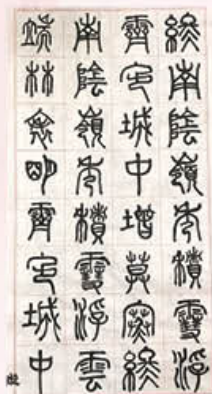 終南陰嶺秀積雪浮
霽色城中增莫寒終
南陰嶺秀積雪浮雲
端林表明霽色城中